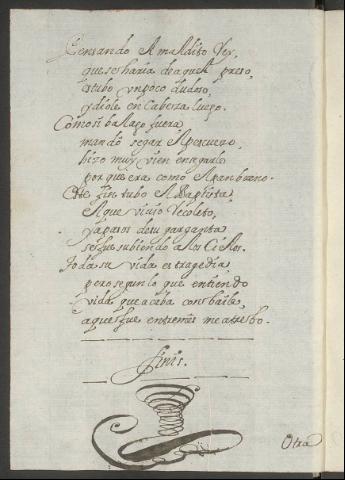 Pensando el maldito Rey,
que se haria de aquel preso,
estubo un poco dudoso,
y diole en Cabeza luego.
Como si balazo fuera
mandò segar el pescuezo,
hizo muy vien en segarle
por que era como el pan bueno.
Este fin tubo el Baptista,
el que vivio Recoleto,
y a pasos de su garganta
se fue subiendo a los Cielos.
Toda su vida es tragedia,
pero segun lo que entiendo
vida que acaba con baile,
aques fue entremes me atrebo.
finis.
Otra